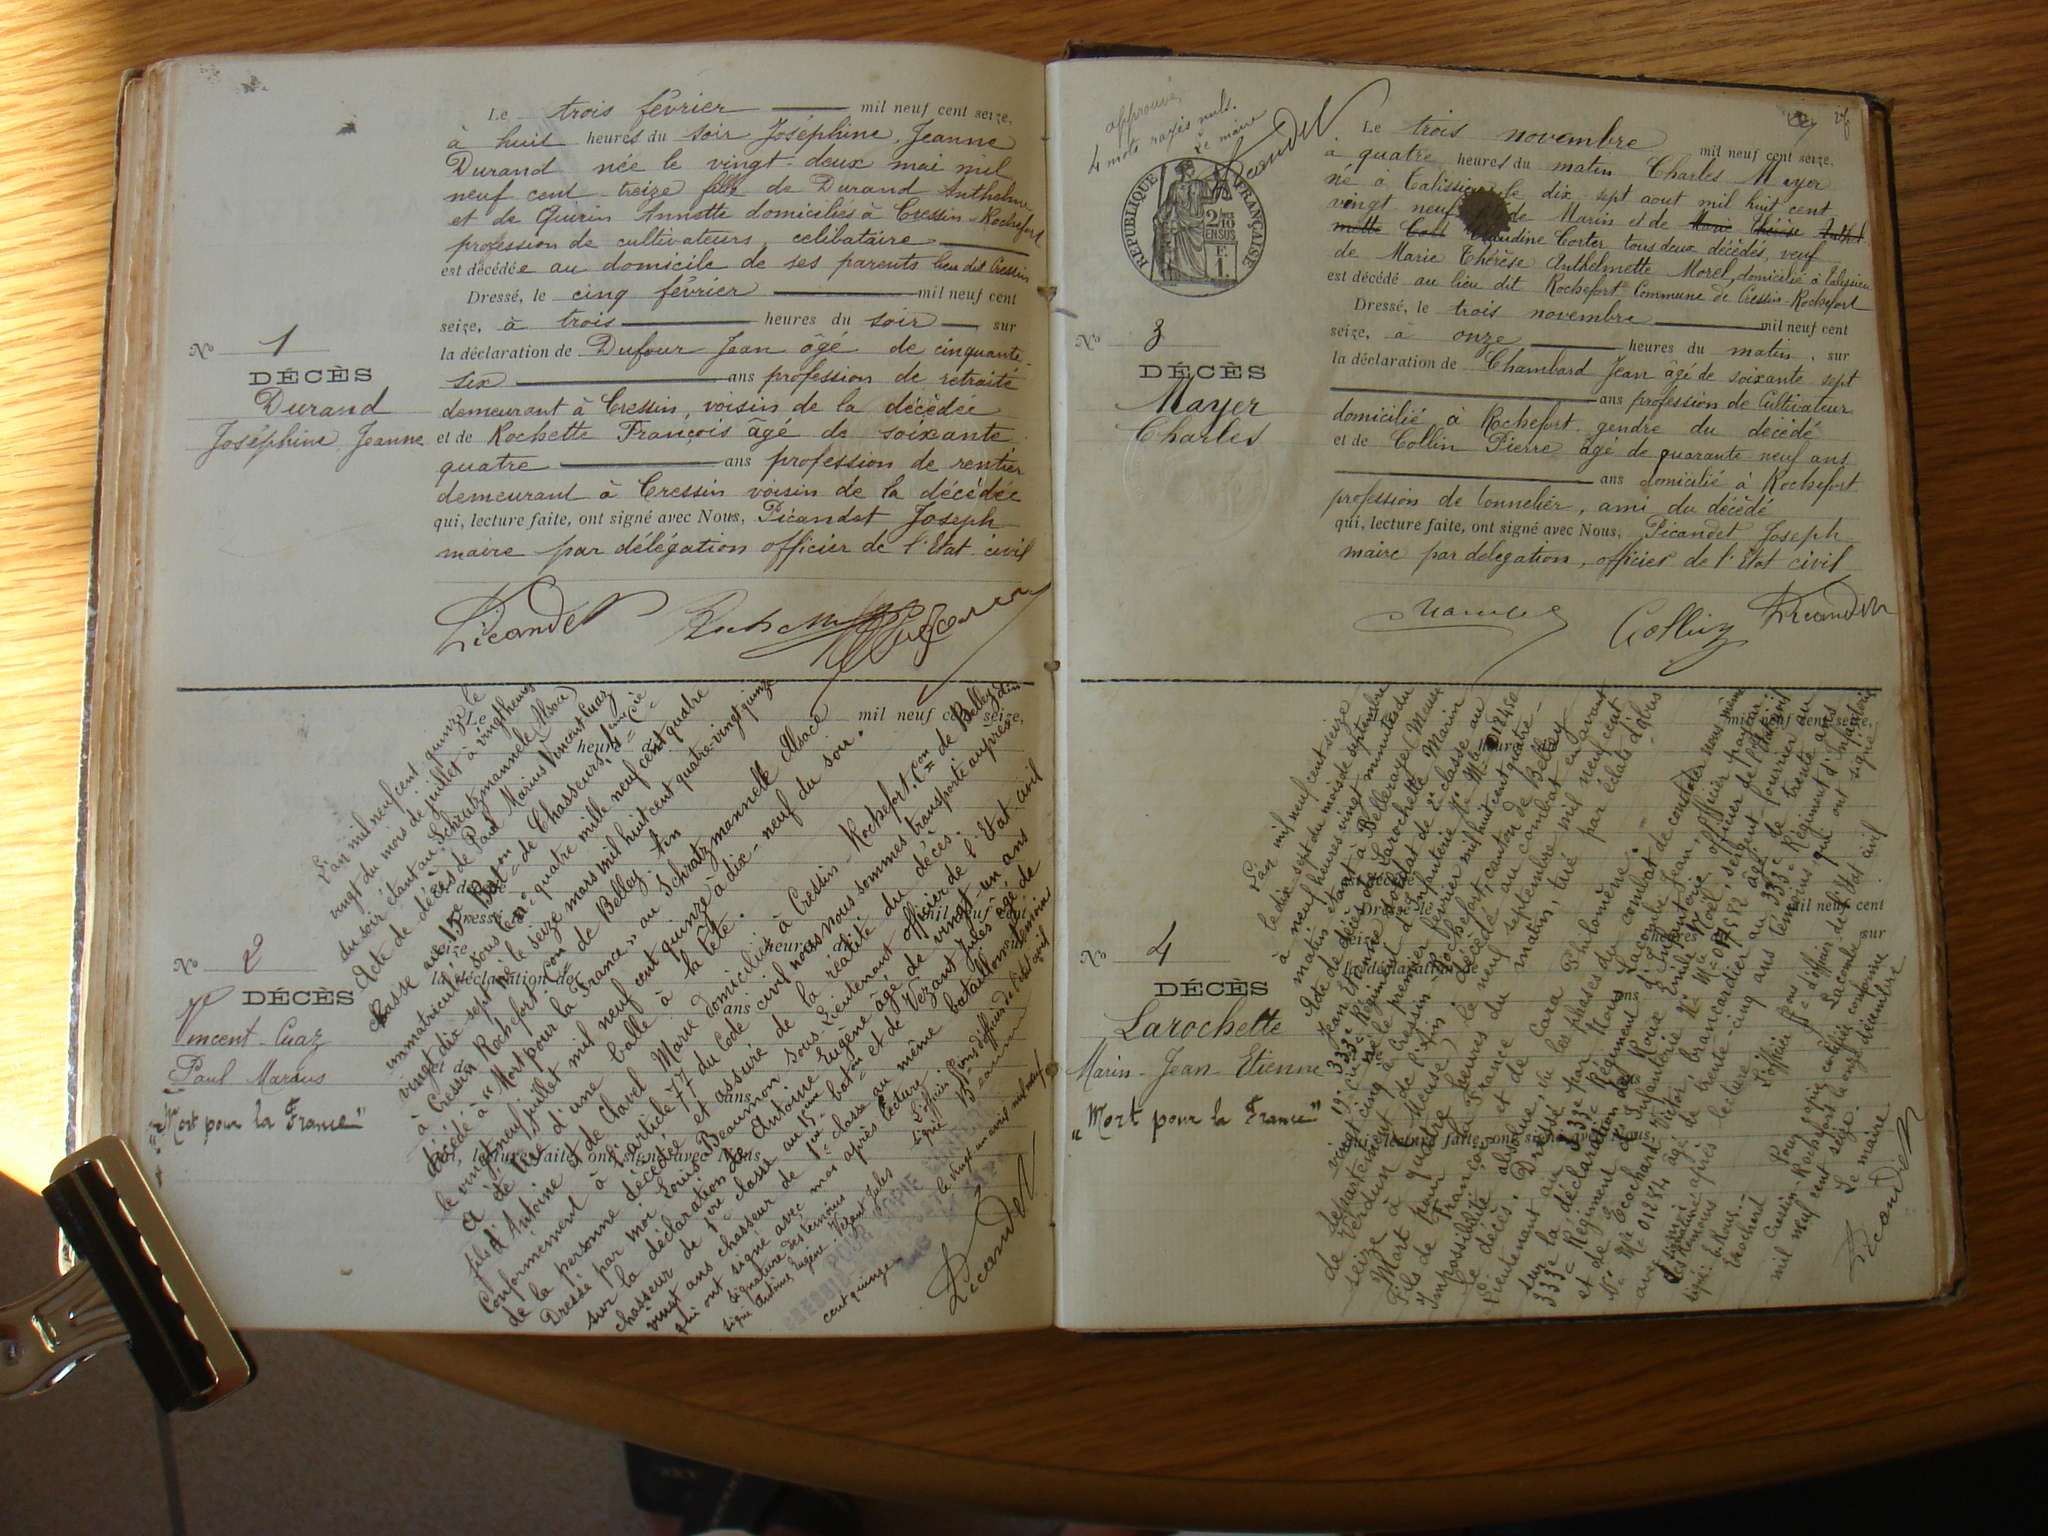 Le trois février mil neuf cent seize,
à huit heures du soir Joséphine, Jeanne
Durand née le vingt-deux mai mil
neuf cent treize fille de Durand Anthelme
et de Quirin Annette domiciliés à Cressin-Rochefort
profession de cultivateurs, célibataire
est décédée au domicile de ses parents lieu dit Cressin
Dressé, le cinq février mil neuf cent
seize, à trois heures du soir sur
la déclaration de Dufour Jean âgé de cinquante
six ans profession de retraité
demeurant à Cressin, voisin de la décédée
et de Rochette François âgé de soixante
quatre ans profession de rentier
demeurant à Cressin voisin de la décédée
qui, lecture faite, ont signé avec Nous, Picandet Joseph
maire par délégation officier de l'Etat civil
Picandet
No 1
DÉCÈS
Durand
Joséphine Jeanne
No 2
DÉCÈS
Vincent-Cuaz
Paul Marius
"Mort pour la France"
Le mil neuf cent seize,
L'an mil neuf cent quinze le
vingt du mois de juillet à vingt heures
du soir étant au Schratzmannele (Alsace)
Acte de décès de Paul Marius Vincent Cuaz
classe au 15e Baton de Chasseurs, 1ère Cie
immatriculé sous le no quatre mille neuf cent quatre
vingt dix sept né le seize mars mil huit cent quatre-vingt quinze
à Cressin Rochefort con de Belley Ain
décédé à "Mort pour la France" au Schratzmannelle Alsace
le vingt neuf juillet mil neuf cent quinze à dix-neuf du soir.
a été tué d'une balle à la tête.
fils d'Antoine et de Clavel Marie domiciliés à Cressin-Rochefort, Con de Belley Ain
Conformément à l'article 77 du Code civil nous nous sommes transporté auprès
de la personne décédée et assuré de la réalité du décès.
Dressé par moi Louis Beaumon sous Lieutenant officier de l'Etat civil
sur la déclaration de Antoine Eugène âgé de vingt un ans
chasseur de 1ère classe au 15ème baton et de Vezant Jules âgé de
vingt ans chasseur de 1ère classe au même bataillon témoins
qui ont signé avec moi après lecture.
signature des témoins
signé Antoine Eugène, Vezant Jules
L'officier de l'état civil
POUR COPIE CONFORME
le vingt un avril mil neuf
cent quinze
Picandet
approuvé
4 mots rayés nuls.
Le maire
Picandet
REPUBLIQUE FRANÇAISE
2/10 EN SUS
1F.
Le trois novembre mil neuf cent seize,
à quatre heures du matin Charles Mayer
né à Talissieu le dix-sept aout mil huit cent
vingt neuf fils de Marin et de Marie Thérèse Anthel
mette Claudine Corter, tous deux décédés, veuf
de Marie Thérèse Anthelmette Morel, domicilié à Talissieu
est décédé au lieu dit Rochefort Commune de Cressin-Rochefort
Dressé, le trois novembre mil neuf cent
seize, à onze heures du matin, sur
la déclaration de Chambard Jean âgé de soixante sept
ans profession de Cultivateur
domicilié à Rochefort gendre du décédé
et de Collin Pierre âgé de quarante neuf ans
ans domicilié à Rochefort
profession de tonnelier, ami du décédé
qui, lecture faite, ont signé avec Nous, Picandet Joseph
maire par délégation, officier de l'Etat civil
Collin Picandet
No 3
DÉCÈS
Mayer
Charles
No 4
DÉCÈS
Larochette
Marin-Jean-Etienne
"Mort pour la France"
mil neuf cent seize,
L'an mil neuf cent seize
le dix sept du mois de septembre
à neuf heures vingt minutes du
matin étant à Belleraye (Meuse)
Acte de décès de Larochette Marin
Jean Etienne soldat de 2e classe au
333e Régiment d'Infanterie No Mle 018450
19e Cie né le premier février mil huit cent quatre-
vingt cinq à Cressin-Rochefort, canton de Belley
département de l'Ain décédé au combat en avant
de Verdun (Meuse) le neuf septembre mil neuf cent
seize à quatre heures du matin, tué par éclats d'obus
Mort pour la France
Fils de François et de Cara Philomène.
Impossibilité absolue, vu les phases du combat de constater nous même
le décès. Dressé par Nous Lacombe Jean, officier payeur
lieutenant au 333e Régiment d'Infanterie officier de l'Etat civil
sur la déclaration de Roux Emile Noël, sergent fourrier au
333e Régiment d'Infanterie No Mle 07582 âgé de trente ans
et de Ecochard Victor, brancardier au 333e Régiment d'Infanterie
No Mle 01284 âgé de trente-cinq ans témoins qui ont signé
avec nous après lecture
Les témoins L'officier de l'état civil
signé: E. Roux Lacombe
Ecochard
Pour copie certifiée conforme
Cressin-Rochefort le onze décembre
mil neuf cent seize.
Le maire
Picandet